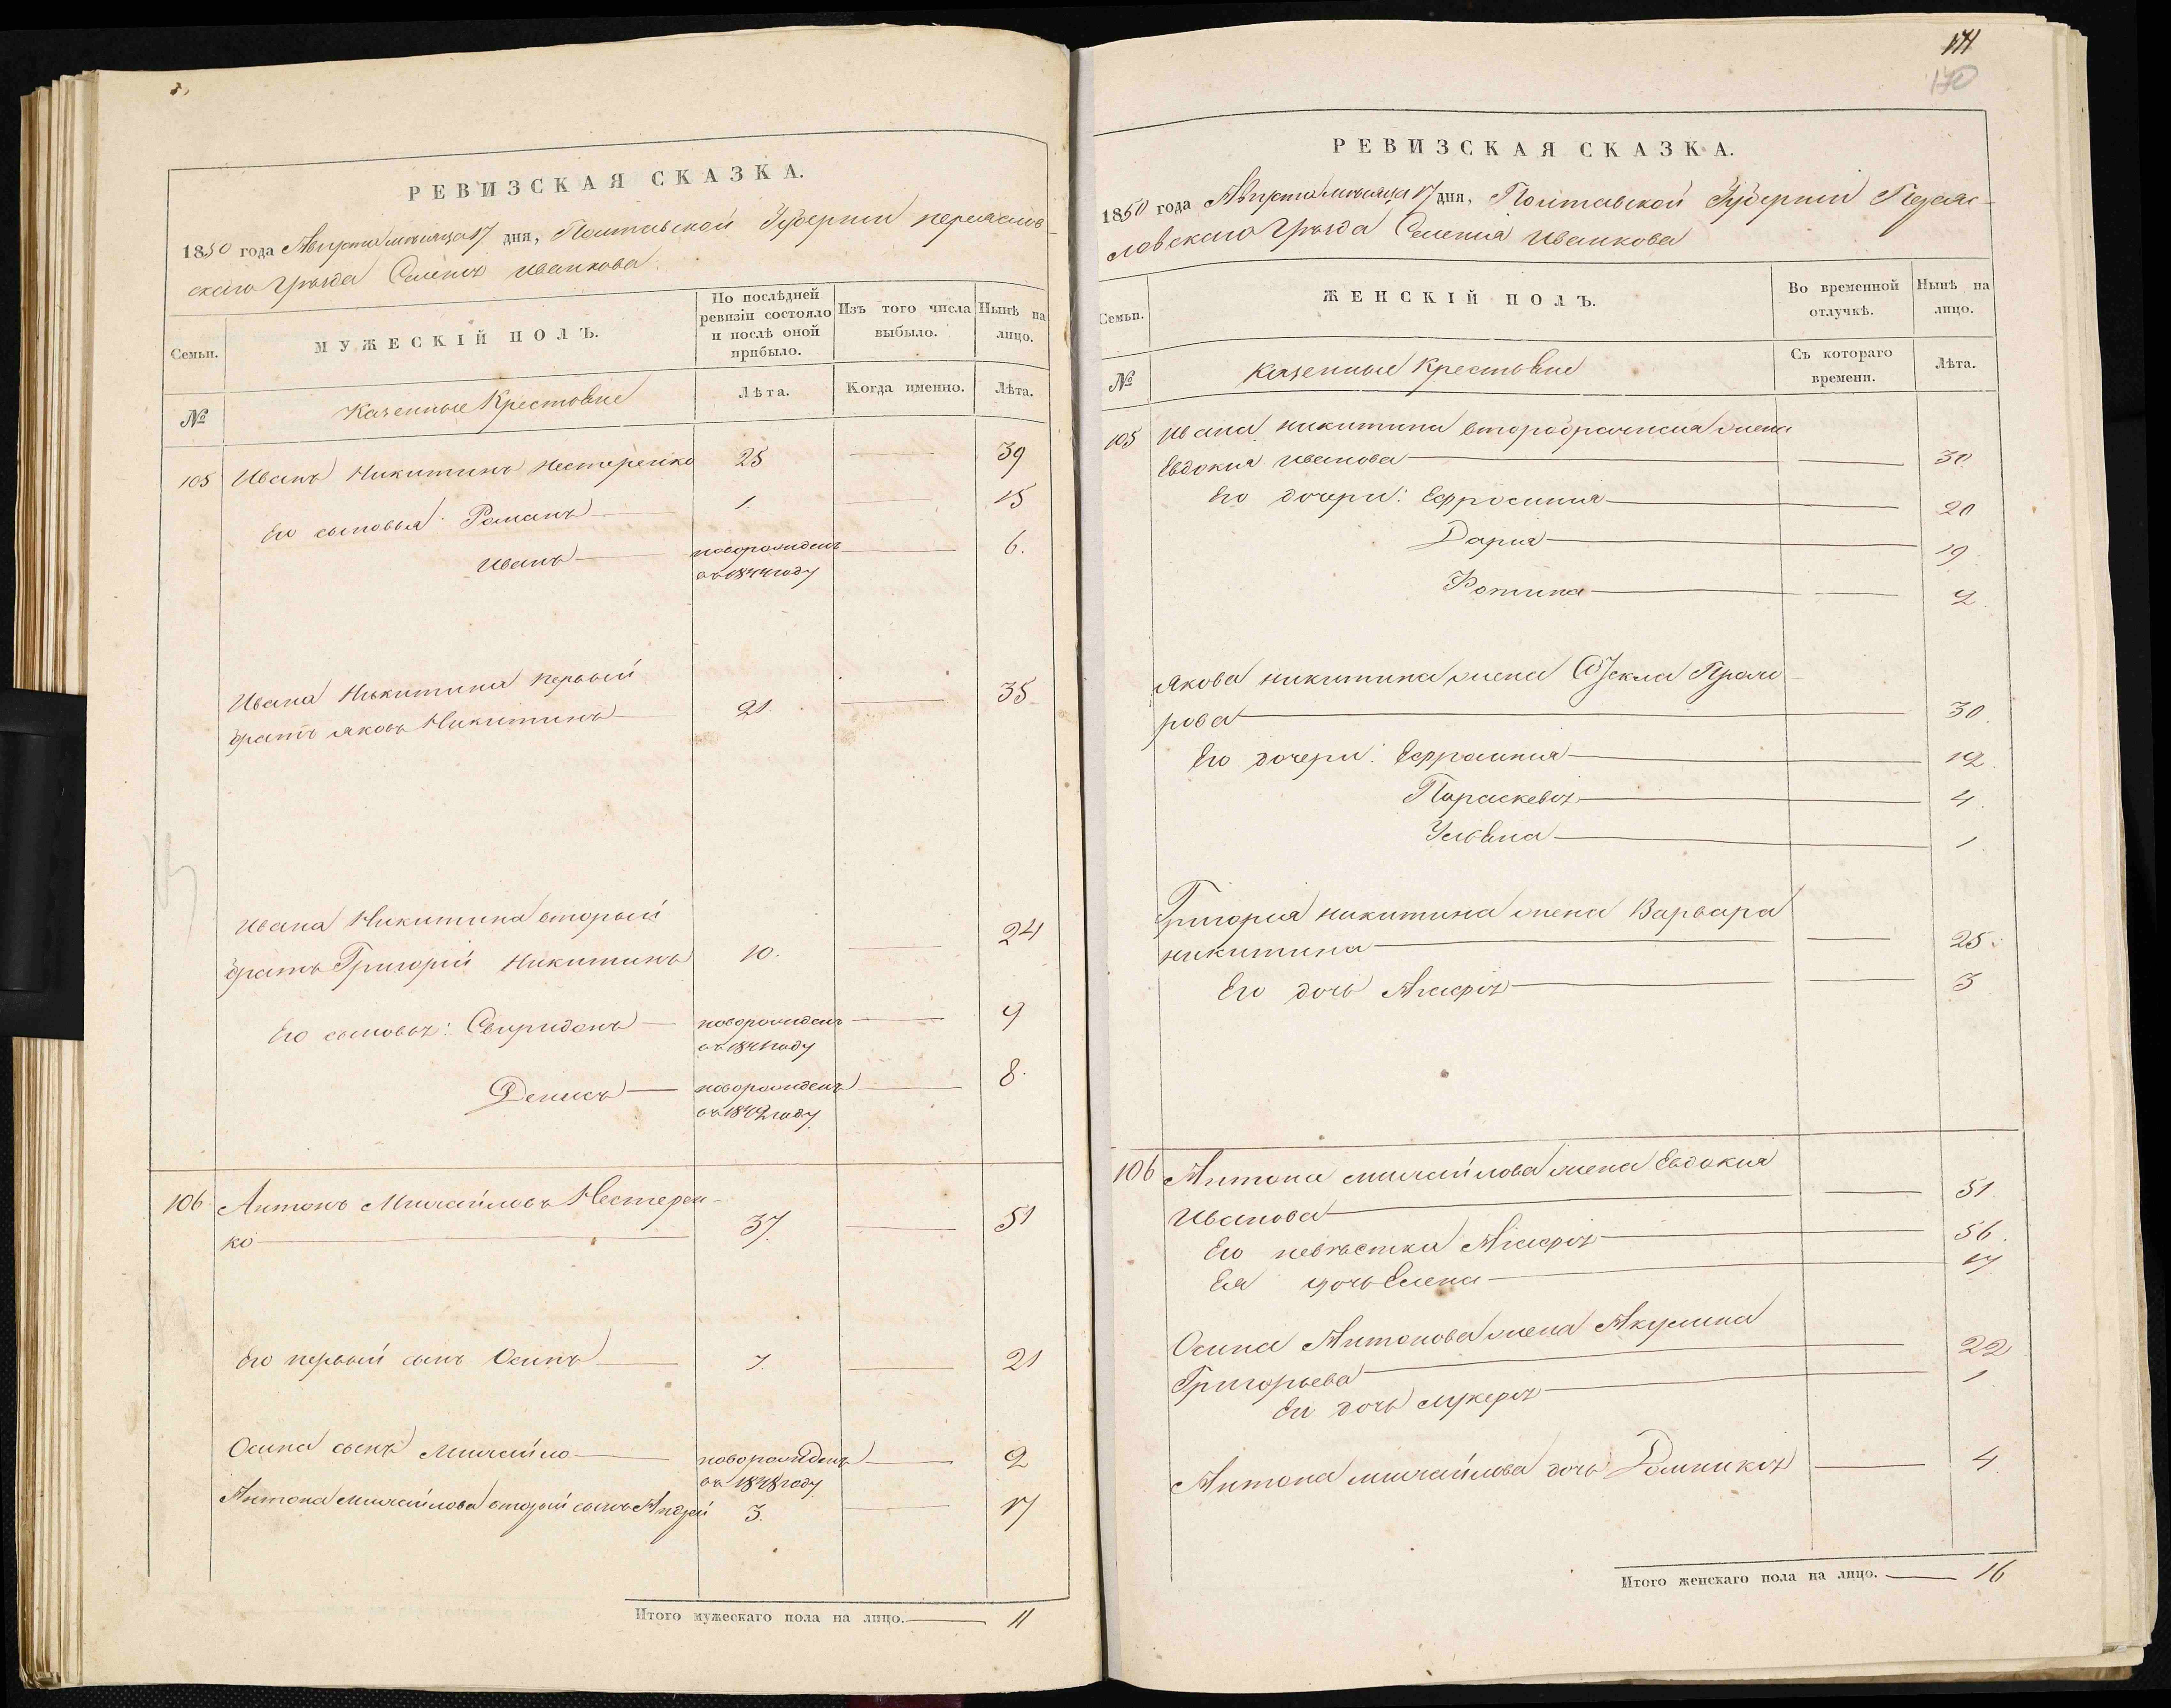 РЕВИЗСКАЯ СКАЗКА.
1850 года Августа мѣсяца 17 дня, Полтавской Губернии переяслов-
скаго Уѣзда Селенія Иванкова
Семьи.
МУЖЕСКІЙ ПОЛЪ.
По послѣдней ревизіи состояло и послѣ оной прибыло.
Изъ того числа выбыло.
Нынѣ на лицо.
№
Казенные Крестьяне
Лѣта.
Когда именно.
Лѣта.
105 Иванъ Никитинъ Нестеренко 25 39
Его сыновья: Романъ 1. 15
Иванъ новорожденъ 6.
въ 1844 году
Ивана Никитина первый
братъ яковъ Никитинъ 21. 35
Ивана Никитина вторый
братъ Григорій Никитинъ 10. 24
Его сыновья: Свиридонъ новорожденъ 9
въ 1841 году
Денисъ новорожденъ 8.
въ 1842 году
106 Антонъ Михайловъ Нестерен-
ко 37. 51
Его первый сынъ Осипъ 7. 21
Осипа сынъ Михайло новорожденъ 2
въ 1848 году
Антона Михайлова вторый сынъ Андрей 3. 17
Итого мужескаго пола на лицо. 11
171
170
РЕВИЗСКАЯ СКАЗКА.
1850 года Августа мѣсяца 17 дня, Полтавской Губерніи Переяс-
ловскаго Уѣзда Селенія Иванкова
Семьи.
ЖЕНСКІЙ ПОЛЪ.
Во временной отлучкѣ.
Нынѣ на лицо.
№
Казенные Крестьяне
Съ котораго времени.
Лѣта.
105 Ивана никитина второбрачная жена
Евдокия иванова 30
Его дочери: Ефросиния 20
Дария 19.
Фотина
якова никитина жена Ѳекла Прохо-
рова 30.
Его дочери: Ефросиния 12.
Параскевя 4.
Ульяна 1
Григория никитина жена Варвара
никитина 25.
Его дочь Агафя 3
106 Антона михайлова жена Евдокия
Иванова 51
Его невѣстка Агафя 56.
Ея дочь Елена 17
Осипа Антонова жена Акулина
Григорьева 22
Ея дочь лукеря 1
Антона михайлова дочь Домникя 4.
Итого женскаго пола на лицо. 16